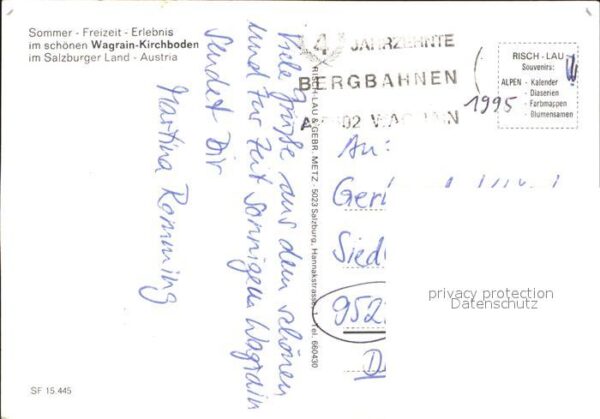 Sommer - Freizeit - Erlebnis
im schönen Wagrain-Kirchboden
im Salzburger Land - Austria
Viele Grüße aus dem schönen
und zur Zeit sonnigen Wagrain
sendet Dir
Martina Romming
4 JAHRZEHNTE
BERGBAHNEN
RISCH-LAU & GEBR. METZ - 5023 Salzburg, Hannakstrasse 1 Tel. 660430
RISCH - LAU
Souvenirs:
ALPEN - Kalender
- Diaserien
- Farbmappen
- Blumensamen
1995
An:
Ger
Sied
952
D
privacy protection
Datenschutz
SF 15.445